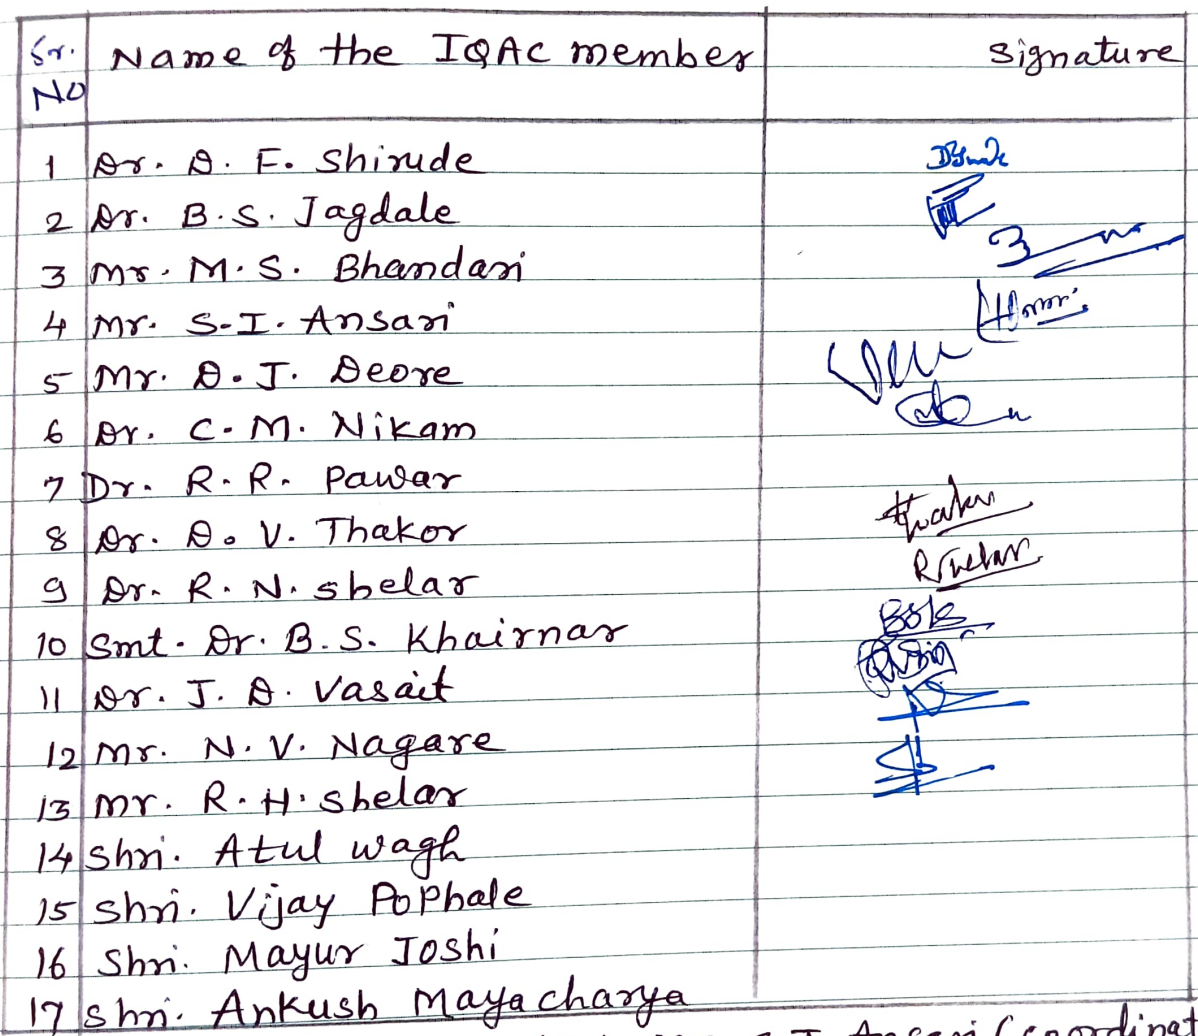 Sr. Name of the IQAC member Signature
No
1 Dr. D. F. Shirude
2 Dr. B.S. Jagdale
3 Mr. M.S. Bhandari
4 Mr. S.I. Ansari
5 Mr. D.J. Deore
6 Dr. C.M. Nikam
7 Dr. R.R. Pawar
8 Dr. D.V. Thakor
9 Dr. R.N. Shelar
10 Smt. Dr. B.S. Khairnar
11 Dr. J.D. Vasait
12 Mr. N.V. Nagare
13 Mr. R.H. Shelar
14 Shri. Atul Wagh
15 Shri. Vijay Pophale
16 Shri. Mayur Joshi
17 Shri. Ankush Mayacharya